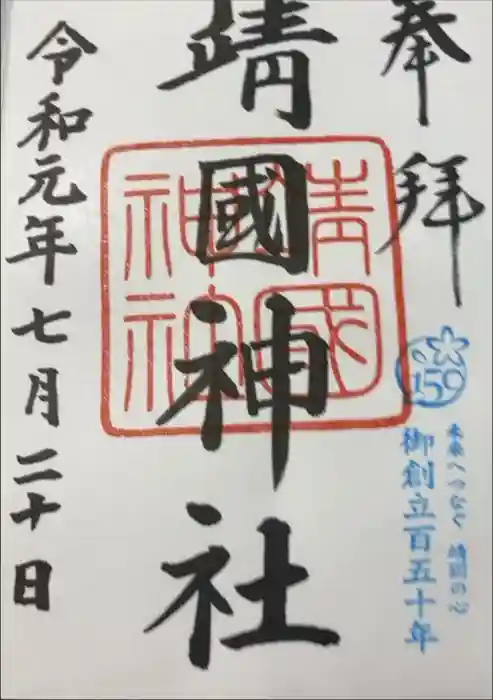 奉拝
150
未来へつなぐ 靖国の心
御創立百五十年
靖國神社
靖國
神社
令和元年七月二十日